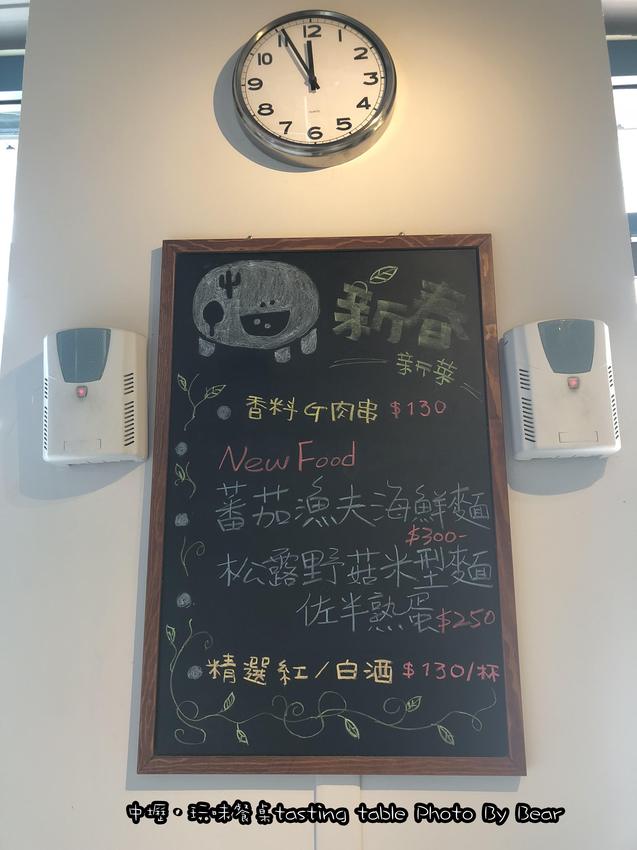 12
1
2
3
4
5
6
7
8
9
10
11
QUARTZ
新春
新菜
香料牛肉串 $130
New Food
蕃茄漁夫海鮮麵
$300-
松露野菇米型麵
佐半熟蛋$250
精選紅/白酒 $130/杯
中壢·玩味餐桌tasting table Photo By Bear